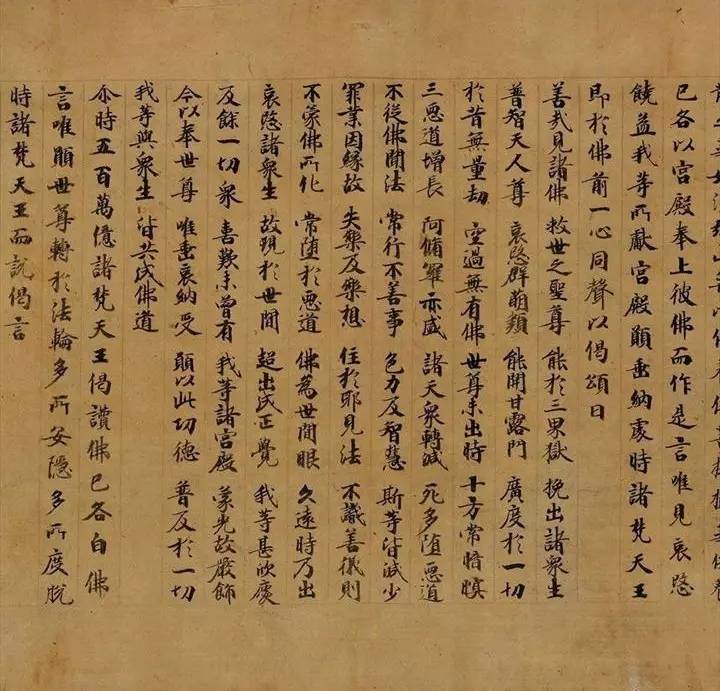 已各以宮殿奉上彼佛而作是言唯見哀愍
饒益我等所獻宮殿願垂納處時諸梵天王
即於佛前一心同聲以偈頌曰
善哉見諸佛 救世之聖尊 能於三界獄 挽出諸衆生
普智天人尊 哀愍群萌類 能開甘露門 廣度於一切
於昔無量劫 空過無有佛 世尊未出時 十方常暗暝
三惡道增長 阿脩羅亦盛 諸天衆轉減 死多墮惡道
不從佛聞法 常行不善事 色力及智慧 斯等皆減少
罪業因緣故 失樂及樂想 住於耶見法 不識善儀則
不蒙佛所化 常墮於惡道 佛為世間眼 久遠時乃出
哀愍諸衆生 故現於世間 超出成正覺 我等甚欣慶
及餘一切衆 喜歎未曾有 我等諸宮殿 蒙光故嚴飾
今以奉世尊 唯垂哀納受 願以此功德 普及於一切
我等與衆生 皆共成佛道
尒時五百萬億諸梵天王偈讚佛已各白佛
言唯願世尊轉於法輪多所安隱多所度脫
時諸梵天王而說偈言